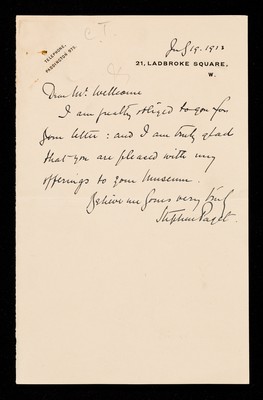 C.T.
TELEPHONE,
PADDINGTON
21, LADBROKE SQUARE,
W.
Dear Mr. Wellcome
I am greatly obliged to you for
your letter: and I am truly glad
that you are pleased with my
offerings to your Museum.
Believe me Yours very truly
Stephen Paget.